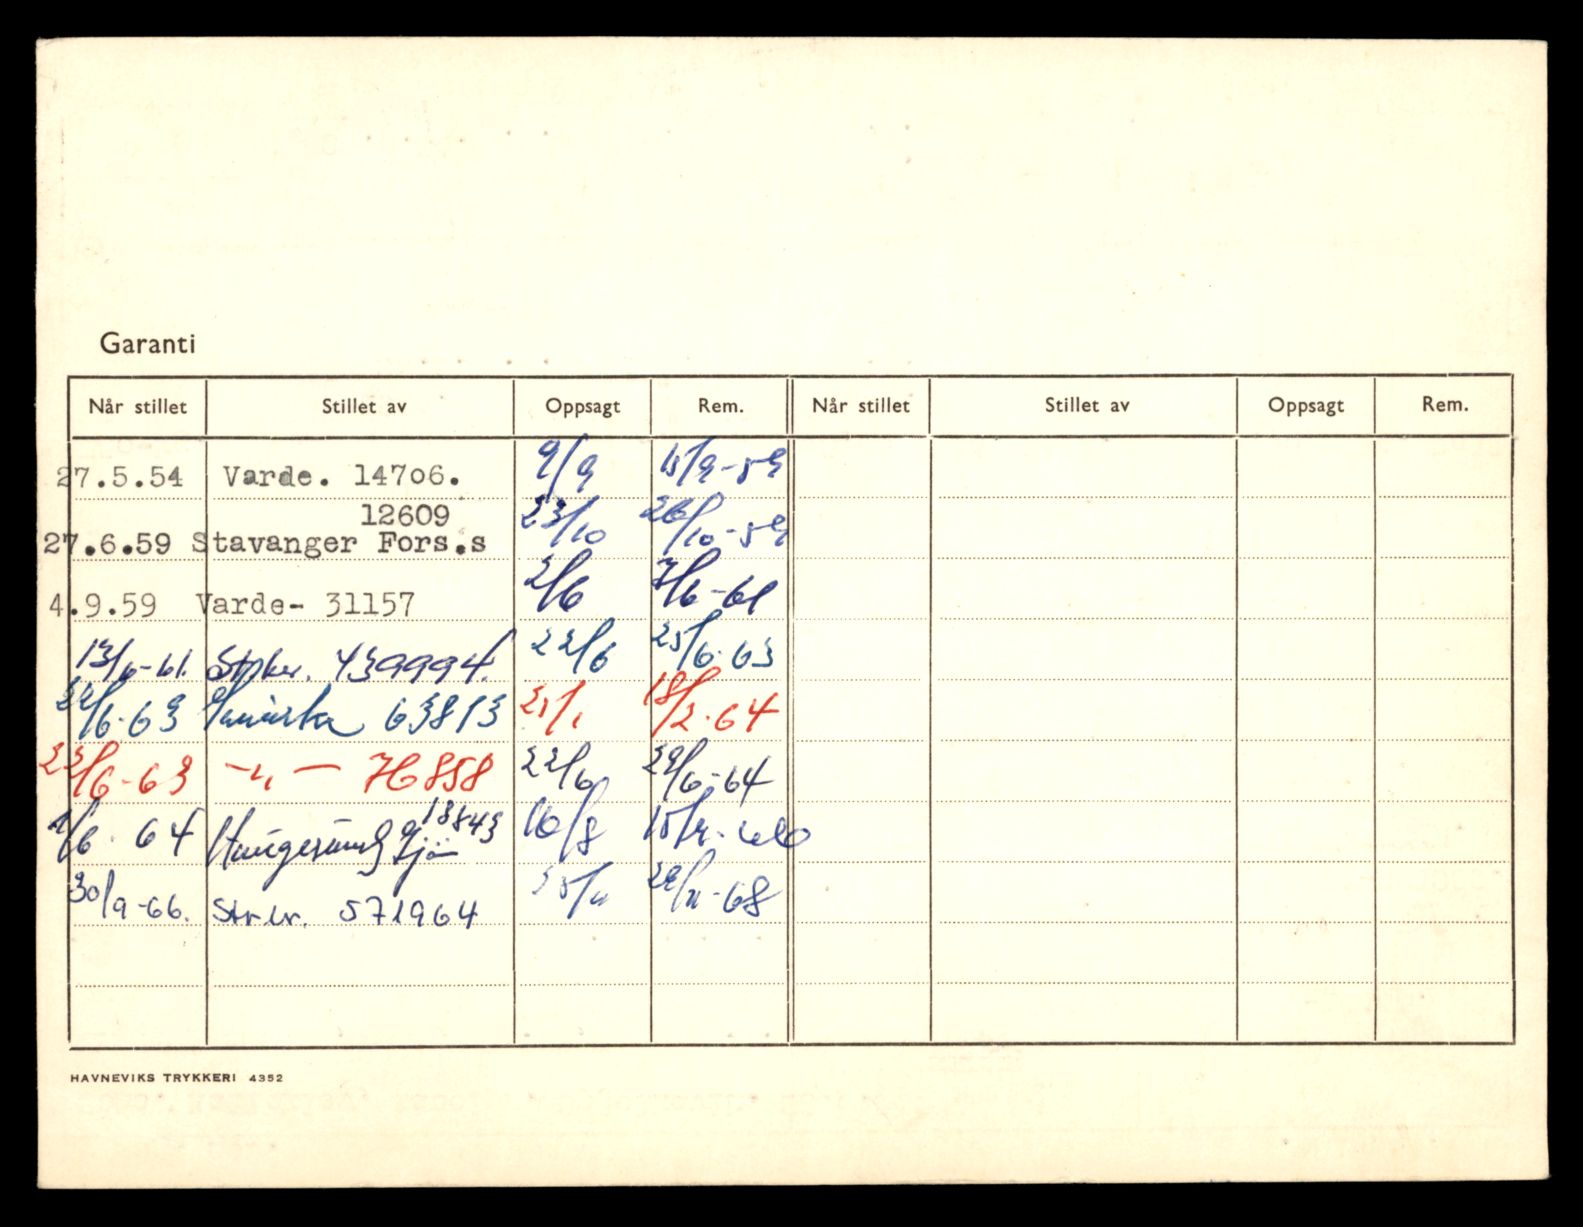 Garanti
Når stillet Stillet av Oppsagt Rem. Når stillet Stillet av Oppsagt Rem.
27.5.54 Varde. 14706. 9/9 15/9-59
12609
27.6.59 Stavanger Fors.s 23/10 26/10-59
4.9.59 Varde- 31157 2/6 7/6-61
13/6-61. 439994. 22/6 25/6-63
22/6-63 63813 21/1 18/2-64
22/6-63 -"- 76858 22/6 29/6-64
18843
/6-64 Haugesund Sjø 16/8
30/9-66. 571964 25/11 29/11-68
HAVNEVIKS TRYKKERI 4352